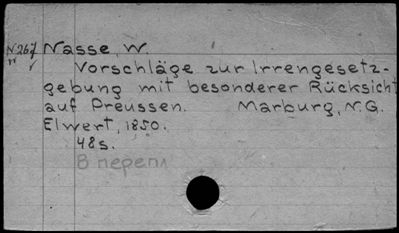 N267 Nasse, W.
Vorschläge zur Irrengesetz-
gebung mit besonderer Rücksicht
auf Preussen. Marburg, N.G.
Elwert, 1850.
48s.
В перепл